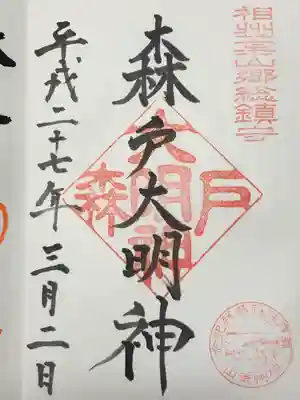 相州葉山郷総鎮守
森戸大明神
森戸
大明神
平成二十七年三月二日